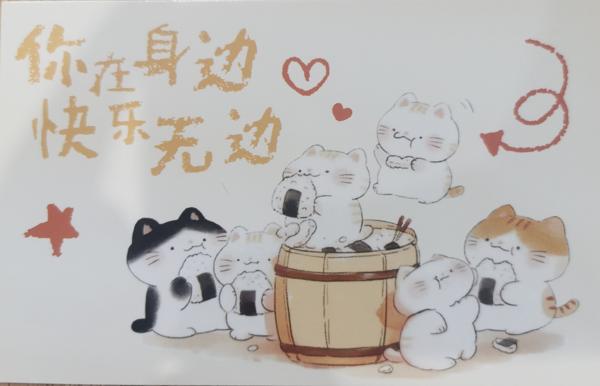 你在身边
快乐无边